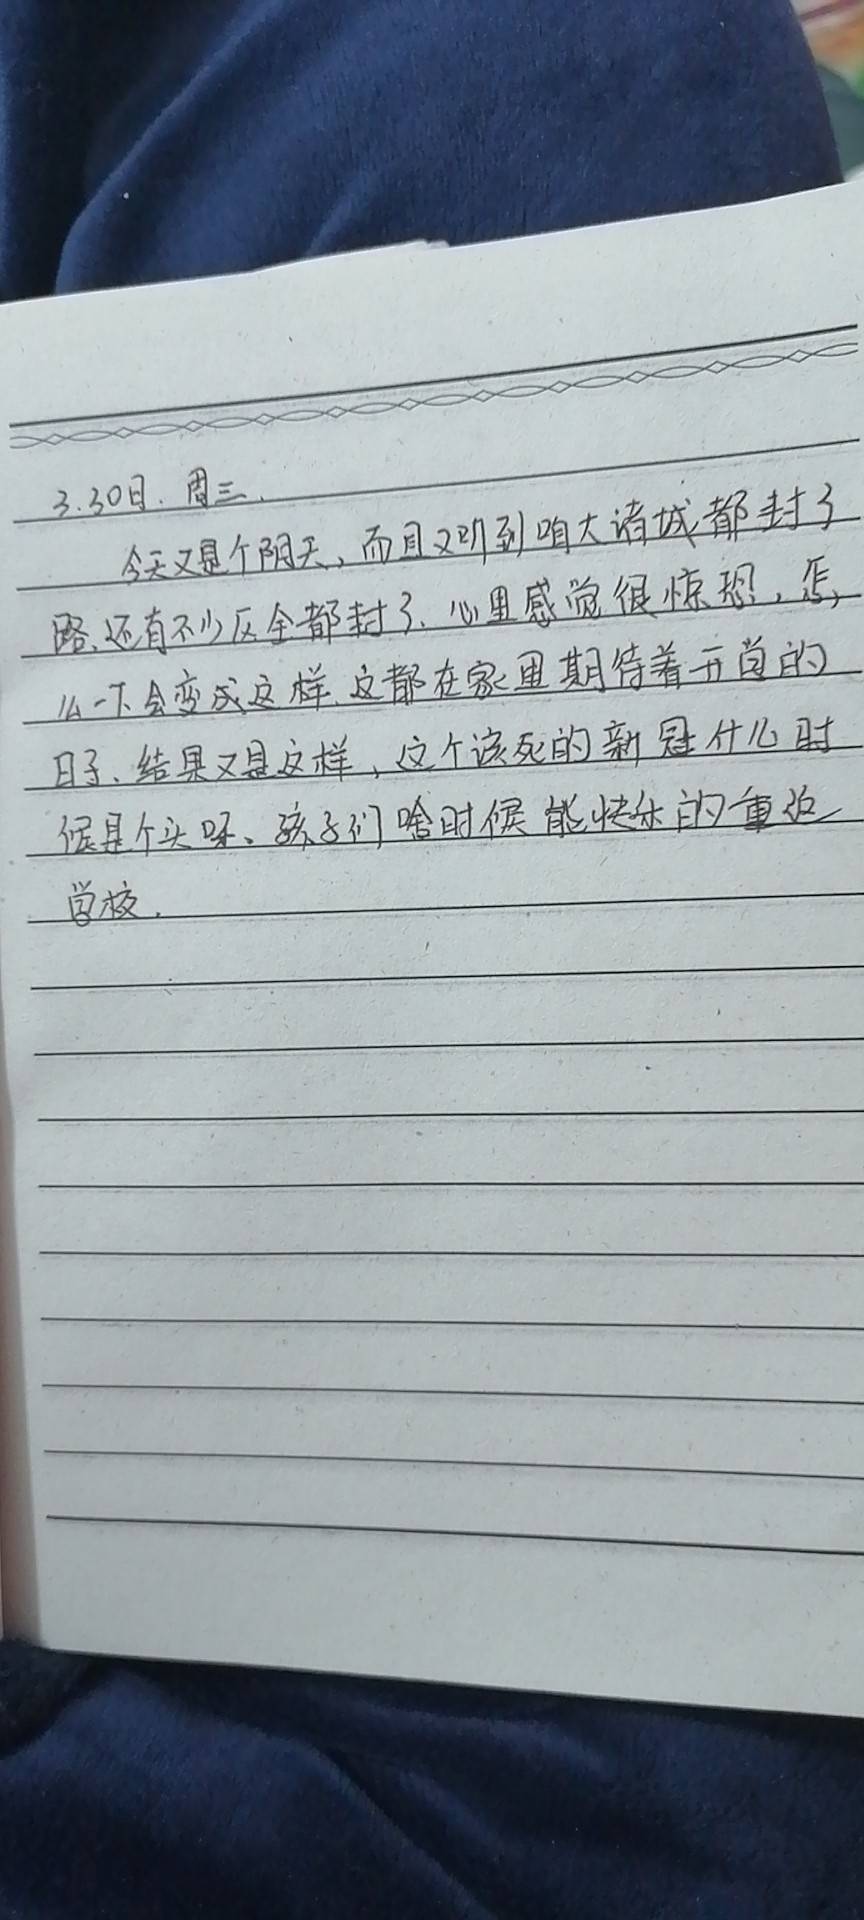 3.30日.周三.
今天又是个阴天,而且又听到咱大诸城都封了
路、还有不少区全都封了、心里感觉很惊恐,怎
么一下会变成这样.这都在家里期待着开学的
日子、结果又是这样,这个该死的新冠什么时
候是个头呀、孩子们啥时候能快乐的重返
学校.